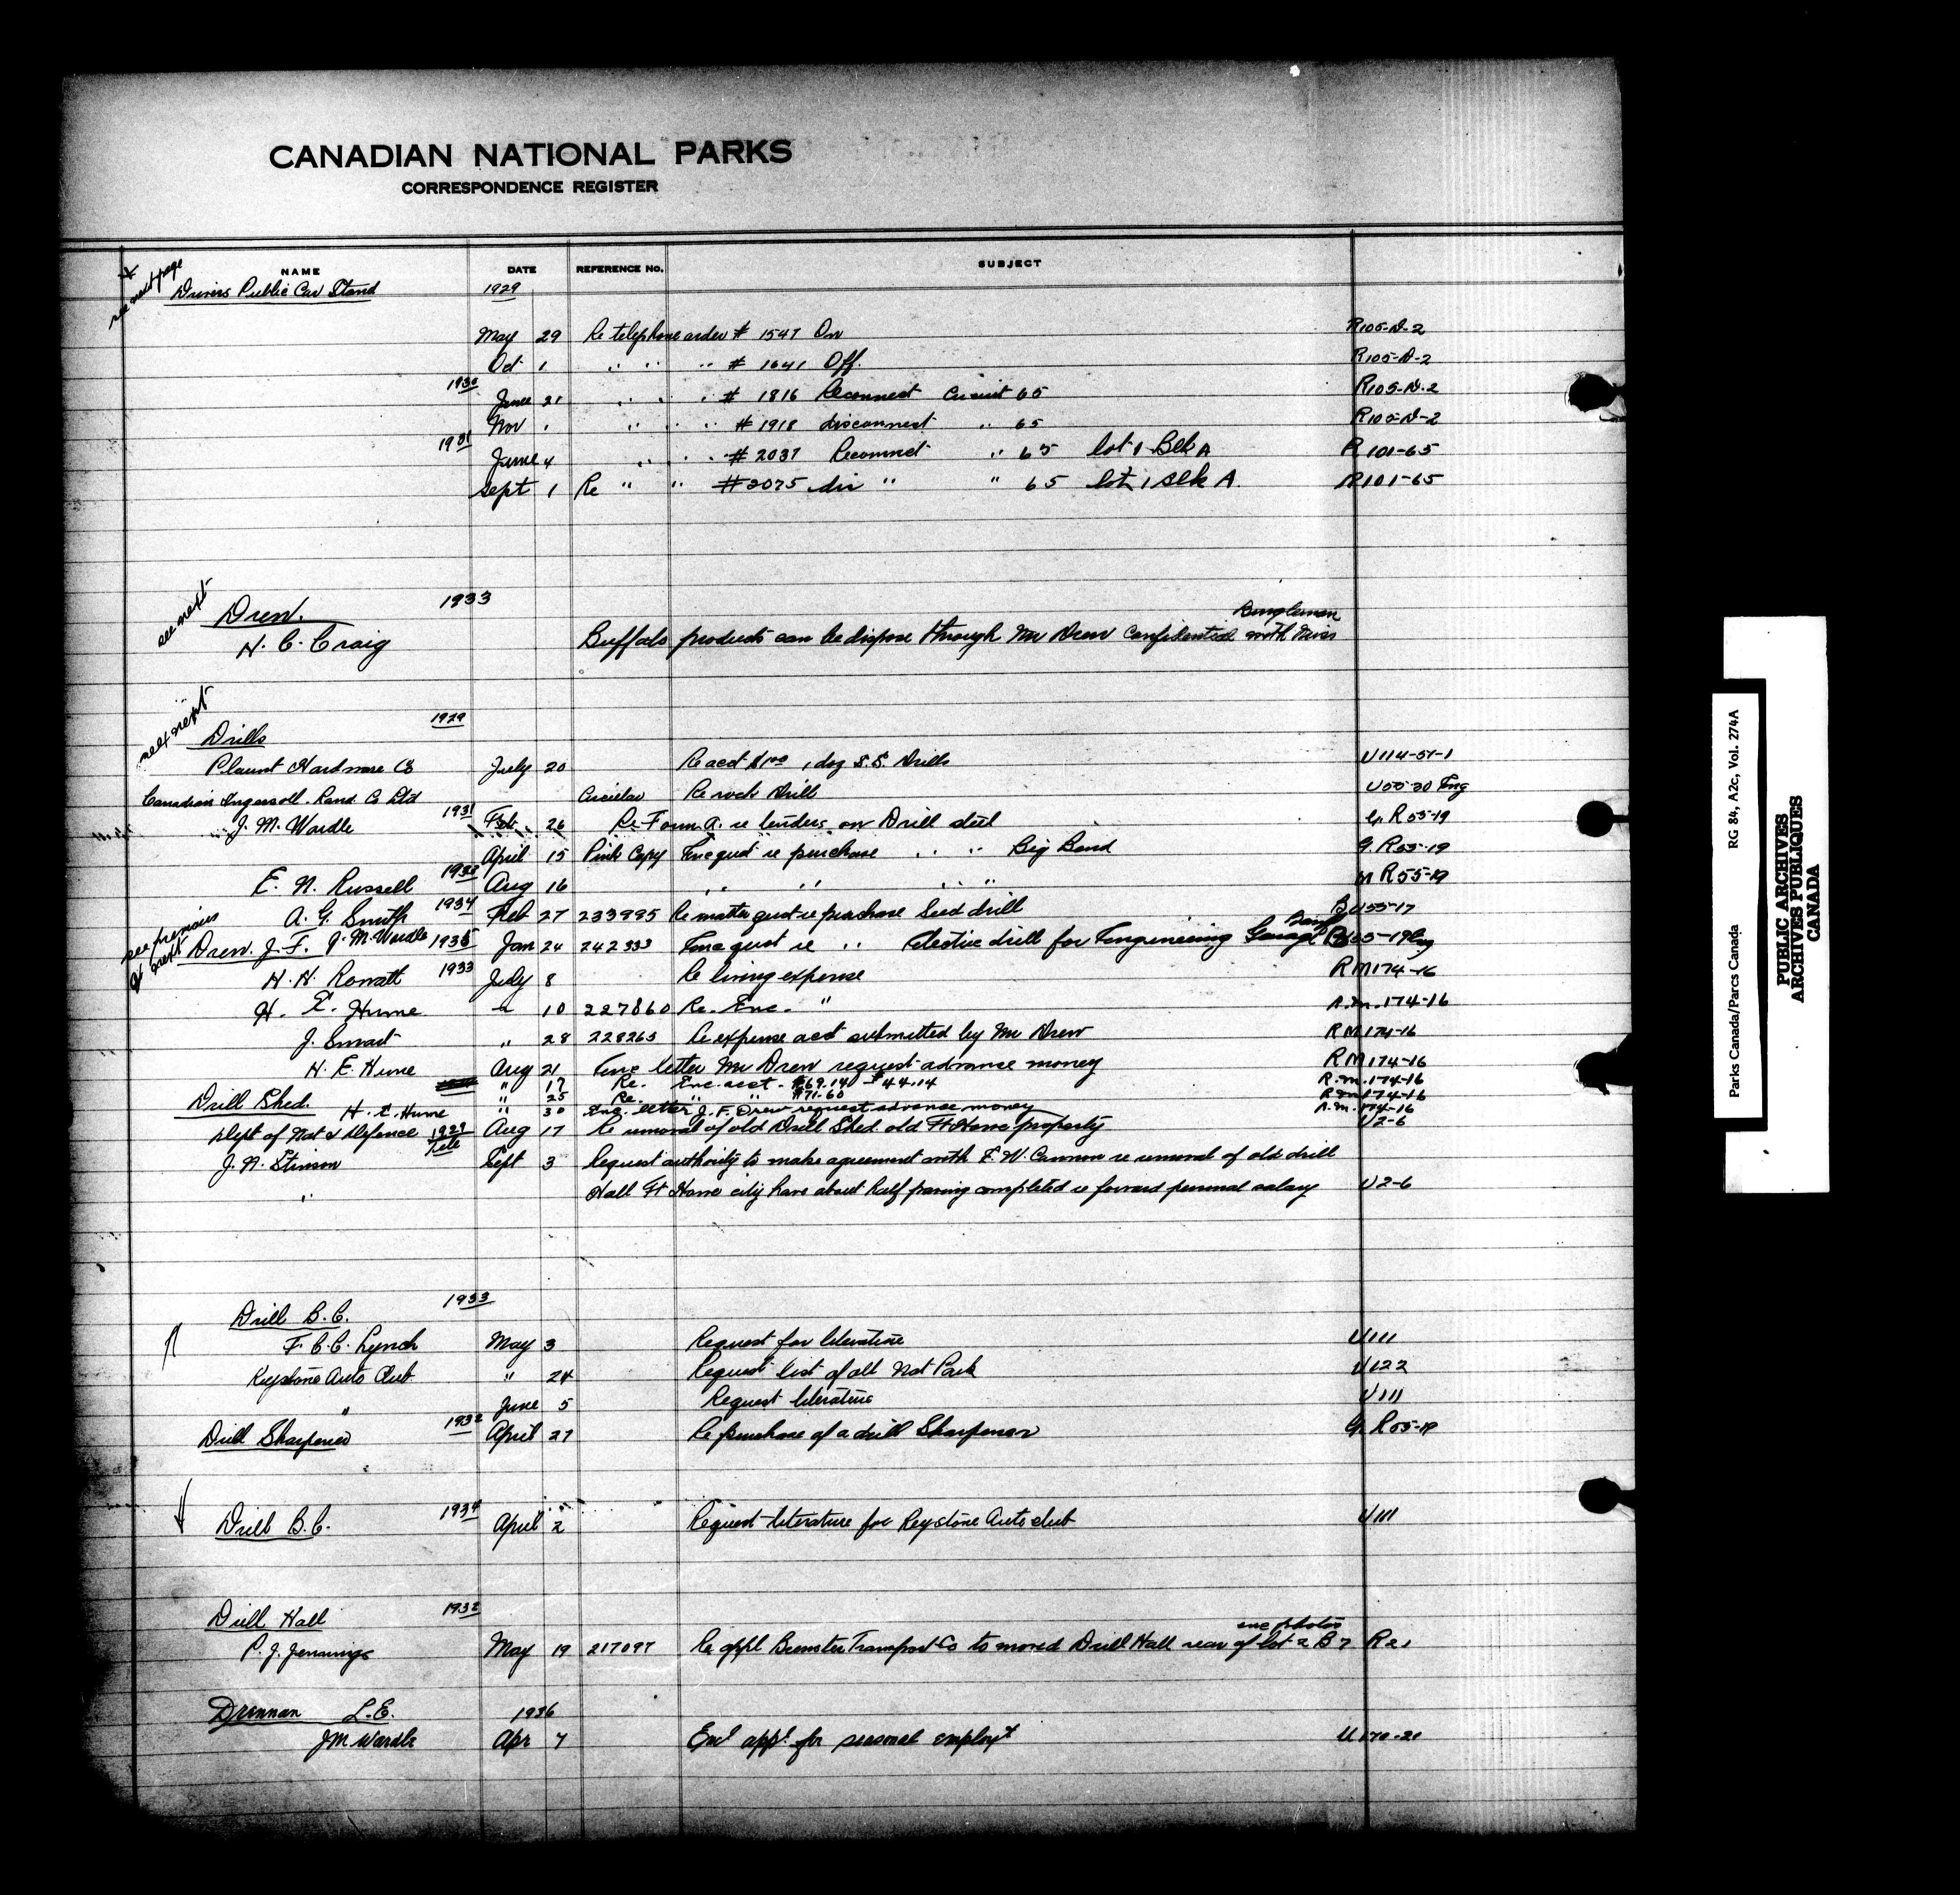 CANADIAN NATIONAL PARKS
CORRESPONDENCE REGISTER
NAME DATE REFERENCE No. SUBJECT
see next page
Drivers Public Car Stand 1929
May 29 Re telephone order # 1547 On R105-D-2
Oct 1 " " " # 1641 Off. R105-D-2
1930 June 21 " " " # 1816 Reconnect Circuit 65 R105-D-2
Nov 1 " " " # 1918 disconnect " 65 R105-D-2
1931 June 4 " " " # 2037 Reconnect " 65 lot 1 Blk A R101-65
Sept 1 Re " " # 2075 dis " " 65 lot 1 Blk A. R101-65
see next
Drew. 1933
N. C. Craig Buffalo products can be dispose through Mr Drew Confidential with Miss Bungleman
see next
Drills 1929
Plaunt Hardware Co July 20 Re acct $1.00 1 doz S.S. Drills U114-51-1
Canadian Ingersoll Rand Co Ltd Circular Re rock Drill U55-20 Eng
J. M. Wardle 1931 Feb 26 Re Form A. re tenders on Drill steel G. R55-19
April 15 Pink Copy Enc quot re purchase " " Big Bend G. R55-19
E. N. Russell 1932 Aug 16 " " " " M R55-19
A. G. Smith 1934 Feb 27 233995 Re matter quot re purchase Seed drill BU55-17
see previous & next
Drew. J. F. J. M. Wardle 1935 Jan 24 242333 Enc quot re " Electric drill for Engineering Garage Banff 55-19 Eng
H. H. Rowatt 1933 July 8 Re living expense RM174-16
H. E. Hume " 10 227860 Re. Enc. " R.M.174-16
J. Smart " 28 228265 Re expense acct submitted by Mr Drew RM174-16
H. E. Hume Aug 21 Enc letter Mr Drew request advance money RM174-16
" 17 Re. Enc. acct. $69.140 $44.14 R.M.174-16
" 25 Re. " " $71.60 R.M.174-16
Drill Shed. H. E. Hume " 30 Enc. letter J. F. Drew request advance money R.M.174-16
Dept of Nat'l Defence 1929 Tele Aug 17 Re removal of old Drill Shed old Ft Howe property U2-6
J. N. Stinson Sept 3 Request authority to make agreement with F. W. Cannon re removal of old drill
" Hall Ft Howe city have about half paving completed re forward personal salary U2-6
Drill B. C. 1933
F. C. C. Lynch May 3 Request for literature U111
Keystone Auto Club " 24 Request list of all Nat Park U122
" June 5 Request literature U111
Drill Sharpener 1932 April 27 Re purchase of a drill Sharpener G. R55-19
Drill B. C. 1934 April 2 Request literature for Keystone Auto club U111
Drill Hall 1932
P. J. Jennings May 19 217097 Re appl Brewster Transport Co to moved Drill Hall rear of lot 2 B 7 enc photos R21
Drennan L. E. 1936
J M Wardle Apr 7 Encl appl. for seasonal employt U170-20
Parks Canada/Parcs Canada RG 84, A2c, Vol. 274A
PUBLIC ARCHIVES
ARCHIVES PUBLIQUES
CANADA